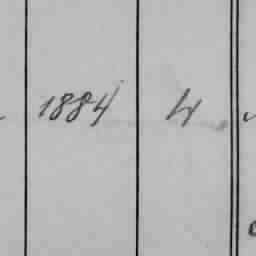 1884 W